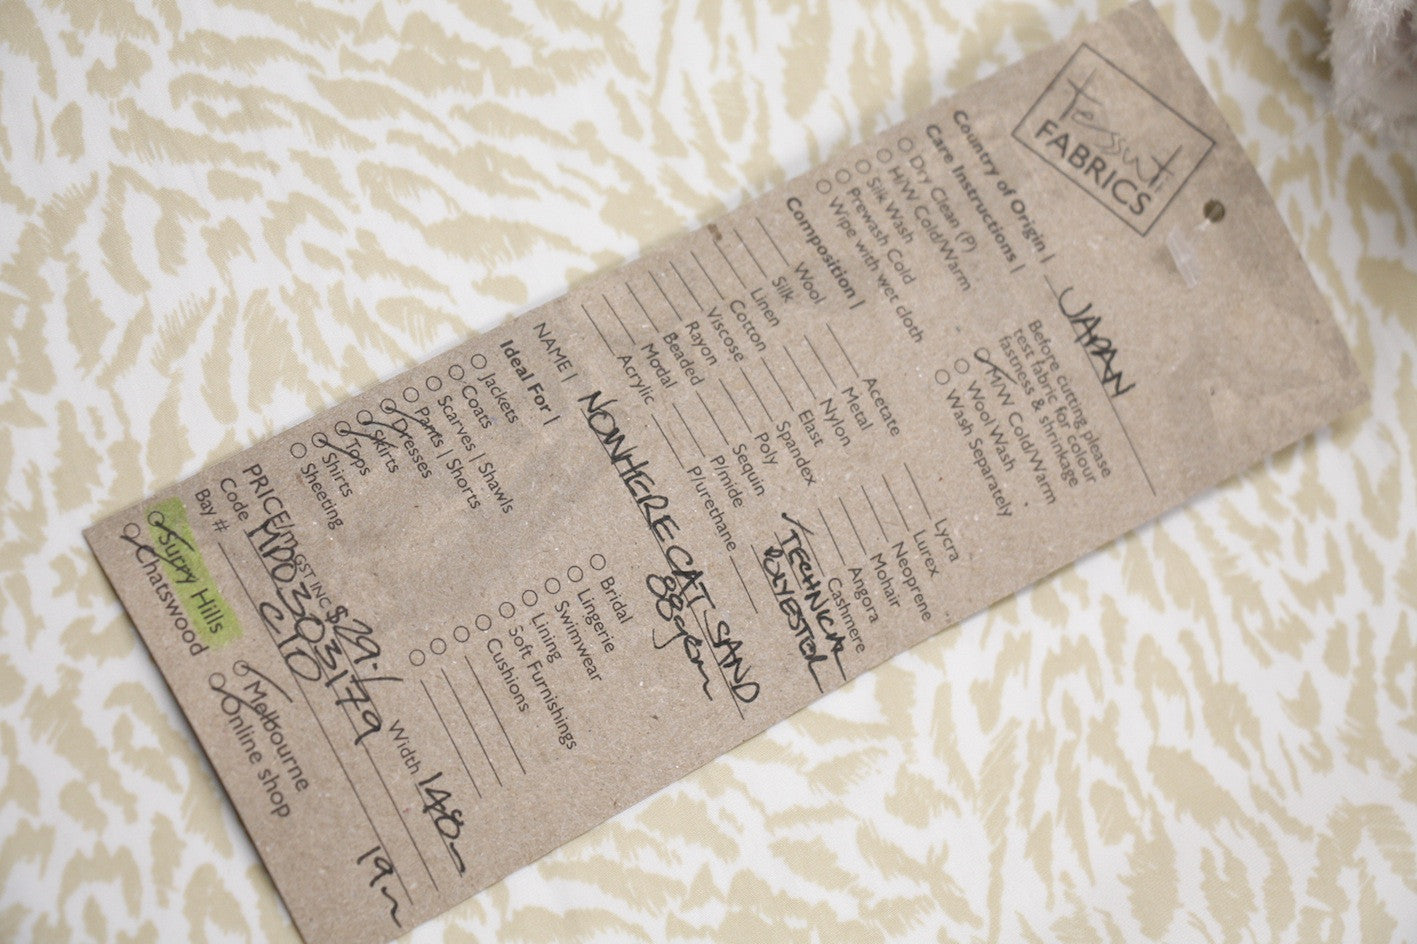 Tessuti
FABRICS
Country of Origin | JAPAN
Care Instructions |
Dry Clean (P)
H/W Cold/Warm
Silk Wash
Prewash Cold
Wipe with wet cloth
Before cutting please
test fabric for colour
fastness & shrinkage
M/W Cold/Warm
Wool Wash
Wash Separately
Composition |
Wool
Silk
Linen
Cotton
Viscose
Rayon
Beaded
Modal
Acrylic
Acetate
Metal
Nylon
Elast
Spandex
Poly
Sequin
P/mide
P/urethane
Lycra
Lurex
Neoprene
Mohair
Angora
Cashmere
TECHNICAL
POLYESTER
NAME | NOWHERE CAT - SAND
88gsm
Ideal For |
Jackets
Coats
Scarves | Shawls
Pants | Shorts
Dresses
Skirts
Tops
Shirts
Sheeting
Bridal
Lingerie
Swimwear
Lining
Soft Furnishings
Cushions
PRICE/m GST INC $29.-/
Width 148
Code HD0303179
Bay # C10
19m
Surry Hills
Chatswood
Melbourne
Online shop